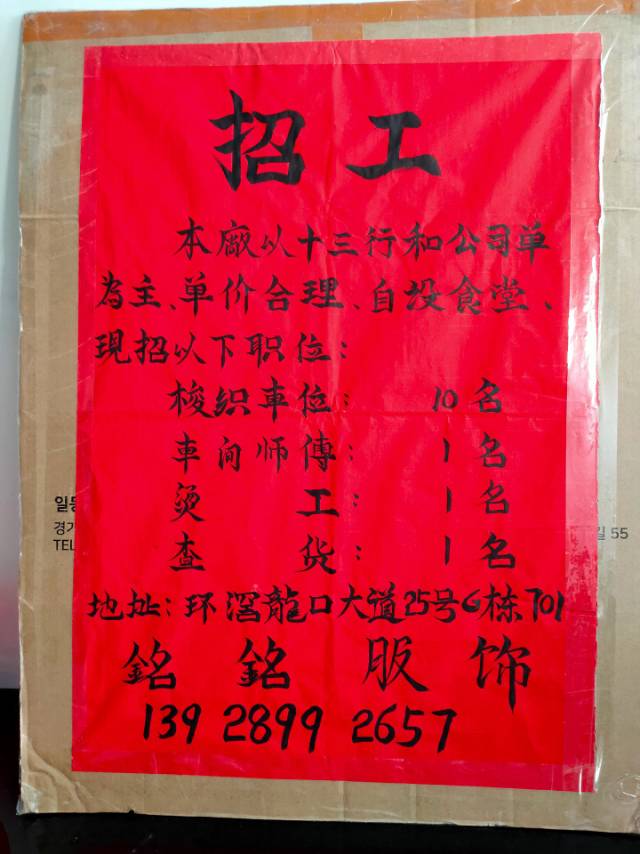 招工
本廠以十三行和公司单
為主、单价合理、自设食堂、
現招以下职位：
梭织車位： 10名
車间师傅： 1名
烫工： 1名
查货： 1名
地址：环滘龍口大道25号G栋701
銘銘服饰
139 2899 2657
일등
경기
TEL
길 55